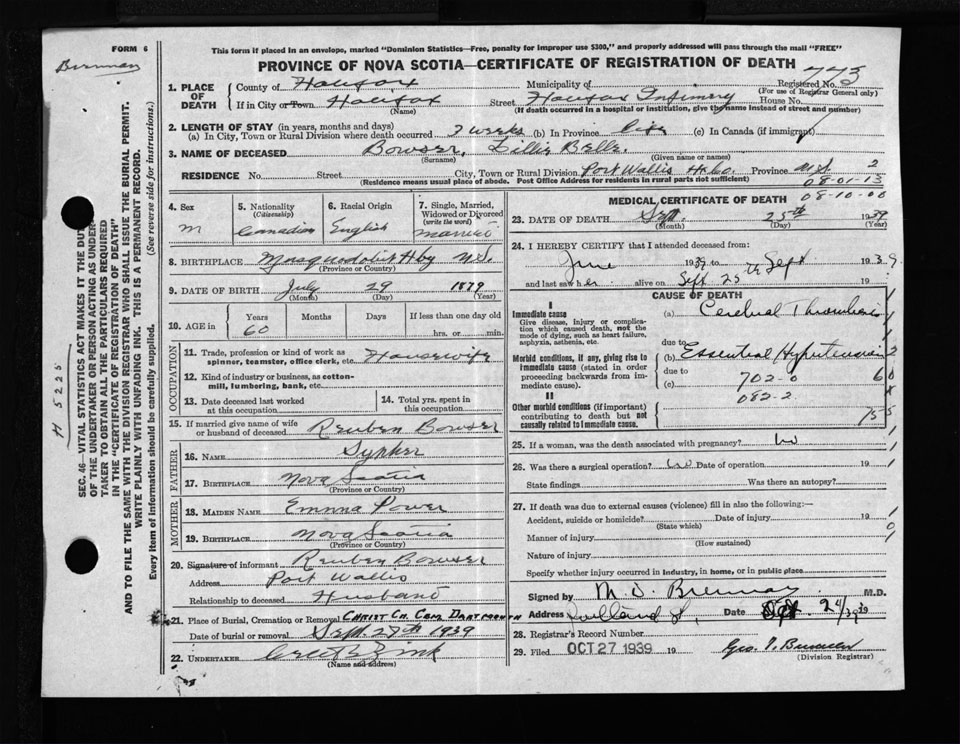 FORM 6
This form if placed in an envelope, marked "Dominion Statistics—Free, penalty for improper use $300," and properly addressed will pass through the mail "FREE"
PROVINCE OF NOVA SCOTIA—CERTIFICATE OF REGISTRATION OF DEATH
Registered No. 773
(For use of Registrar General only)
1. PLACE OF DEATH
County of Halifax
Municipality of
If in City or Town Halifax
(Name)
Street Halifax Infirmary House No.
(If death occurred in a hospital or institution, give the name instead of street and number)
2. LENGTH OF STAY (in years, months and days)
(a) In City, Town or Rural Division where death occurred 7 weeks (b) In Province life (c) In Canada (if immigrant)
3. NAME OF DECEASED Bowser, Lillie Belle
(Surname) (Given name or names)
RESIDENCE No. Street City, Town or Rural Division Port Wallis Hx Co. Province N.S. 2
(Residence means usual place of abode. Post Office Address for residents in rural parts not sufficient)
08-01-13
08-10-00
4. Sex
M
5. Nationality
(Citizenship)
Canadian
6. Racial Origin
English
7. Single, Married, Widowed or Divorced
(write the word)
Married
8. BIRTHPLACE Musquodoboit Hby N.S.
(Province or Country)
9. DATE OF BIRTH July 29 1879
(Month) (Day) (Year)
10. AGE in
Years Months Days If less than one day old
60 hrs. or min.
OCCUPATION
11. Trade, profession or kind of work as spinner, teamster, office clerk, etc. Housewife
12. Kind of industry or business, as cotton-mill, lumbering, bank, etc.
13. Date deceased last worked at this occupation
14. Total yrs. spent in this occupation
15. If married give name of wife or husband of deceased Reuben Bowser
FATHER
16. NAME Sypher
17. BIRTHPLACE Nova Scotia
(Province or Country)
MOTHER
18. MAIDEN NAME Emma Power
19. BIRTHPLACE Nova Scotia
(Province or Country)
20. Signature of informant Reuben Bowser
Address Port Wallis
Relationship to deceased Husband
21. Place of Burial, Cremation or Removal CHRIST CH. CEM. DARTMOUTH
Date of burial or removal Sept. 27th 1939
22. UNDERTAKER Zink
(Name and address)
MEDICAL CERTIFICATE OF DEATH
23. DATE OF DEATH Sept. 25th 1939
(Month) (Day) (Year)
24. I HEREBY CERTIFY that I attended deceased from:
June 1939 to Sept 1939
and last saw her alive on Sept 25 19
CAUSE OF DEATH
I
Immediate cause
Give disease, injury or complication which caused death, not the mode of dying, such as heart failure, asphyxia, asthenia, etc.
(a) Cerebral Thrombosis
due to
Morbid conditions, if any, giving rise to immediate cause (stated in order proceeding backwards from immediate cause).
(b) Essential Hypertension
due to
(c) 702-0
082-2
II
Other morbid conditions (if important) contributing to death but not causally related to immediate cause.
25. If a woman, was the death associated with pregnancy? No
26. Was there a surgical operation? No Date of operation 19
State findings Was there an autopsy?
27. If death was due to external causes (violence) fill in also the following:—
Accident, suicide or homicide? Date of injury 19
(State which)
Manner of injury
(How sustained)
Nature of injury
Specify whether injury occurred in industry, in home, or in public place
Signed by M.D.
Address Date
28. Registrar's Record Number
29. Filed OCT 27 1939 19
(Division Registrar)
Brennan
H 5225
SEC. 46—VITAL STATISTICS ACT MAKES IT THE DUTY
OF THE UNDERTAKER OR PERSON ACTING AS UNDER-
TAKER TO OBTAIN ALL THE PARTICULARS REQUIRED
IN THE "CERTIFICATE OF REGISTRATION OF DEATH"
AND TO FILE THE SAME WITH THE DIVISION REGISTRAR WHO SHALL ISSUE THE BURIAL PERMIT.
WRITE PLAINLY WITH UNFADING INK. THIS IS A PERMANENT RECORD.
Every item of information should be carefully supplied. (See reverse side for instructions.)